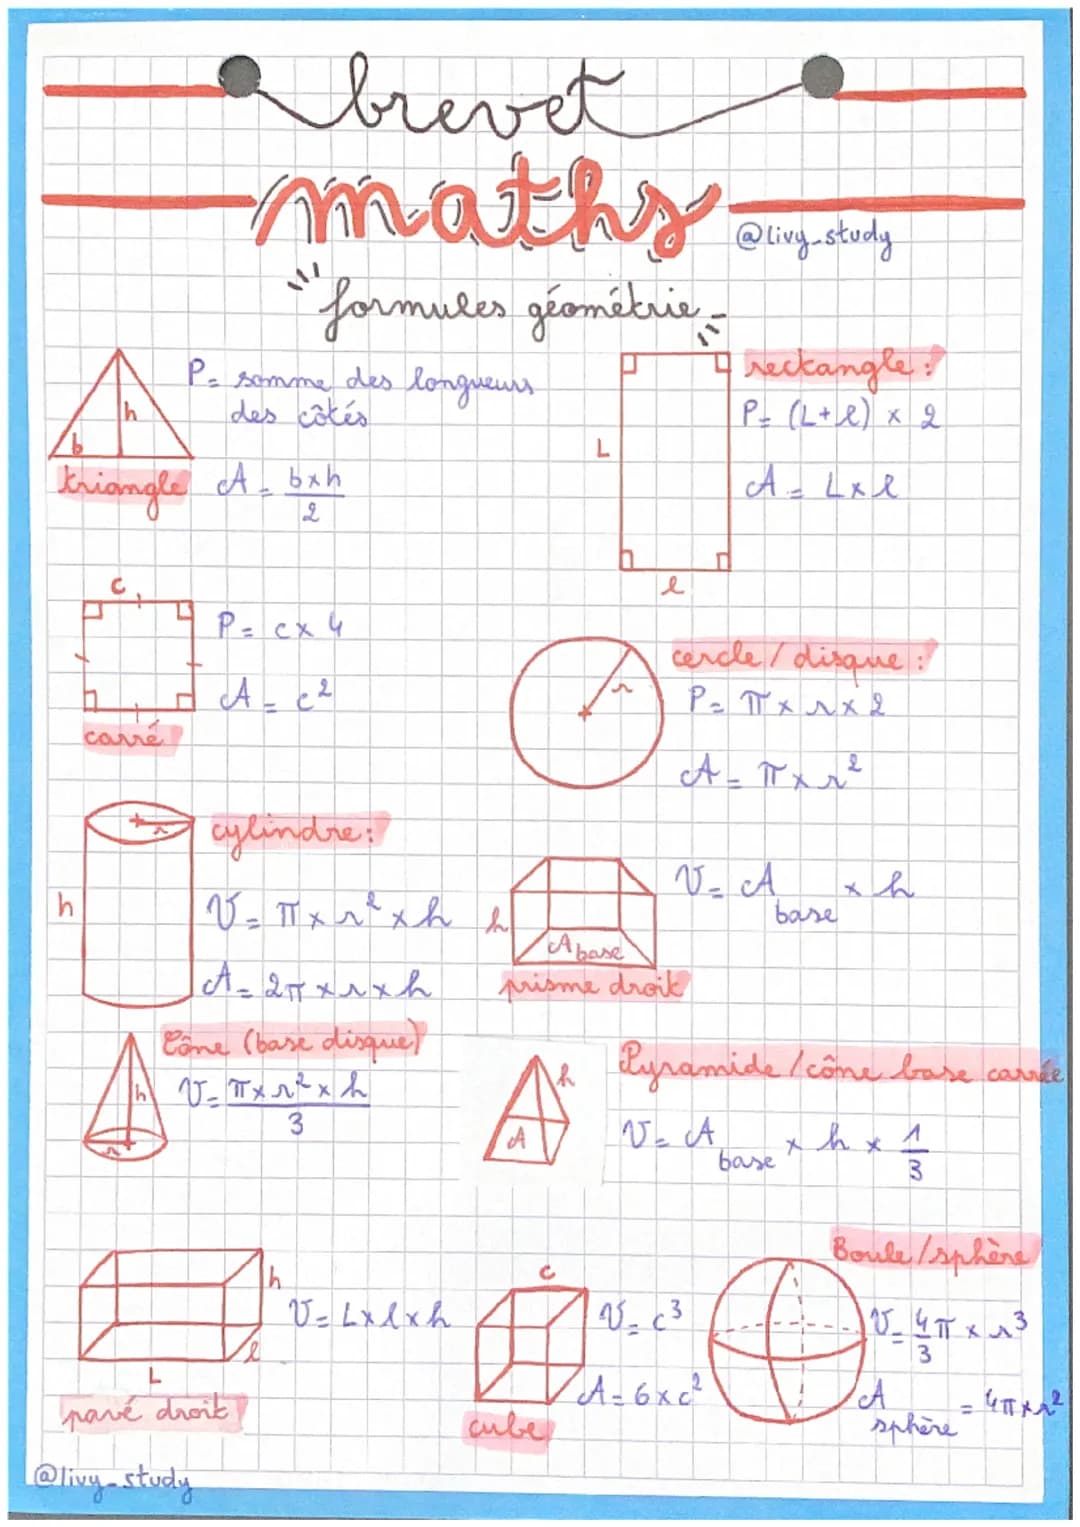 brevet
maths
@livy_study
"formules géométrie"
h
b
triangle
P = somme des longueurs
des côtés
A = b×h
2
L
l
rectangle :
P = (L+l) × 2
A = L×l
c
P = c×4
A = c²
carré
r
cercle / disque :
P = π × r × 2
A = π × r²
r
h
cylindre :
V = π × r² × h
A = 2π × r × h
h
A base
prisme droit
V = A base × h
h
r
Cône (base disque)
V = π × r² × h
3
h
A
Pyramide / cône base carrée
V = A base × h × 1
3
h
l
L
V = L×l×h
pavé droit
c
V = c³
A = 6×c²
cube
Boule/sphère
V = 4π × r³
3
A sphère = 4π×r²
@livy_study